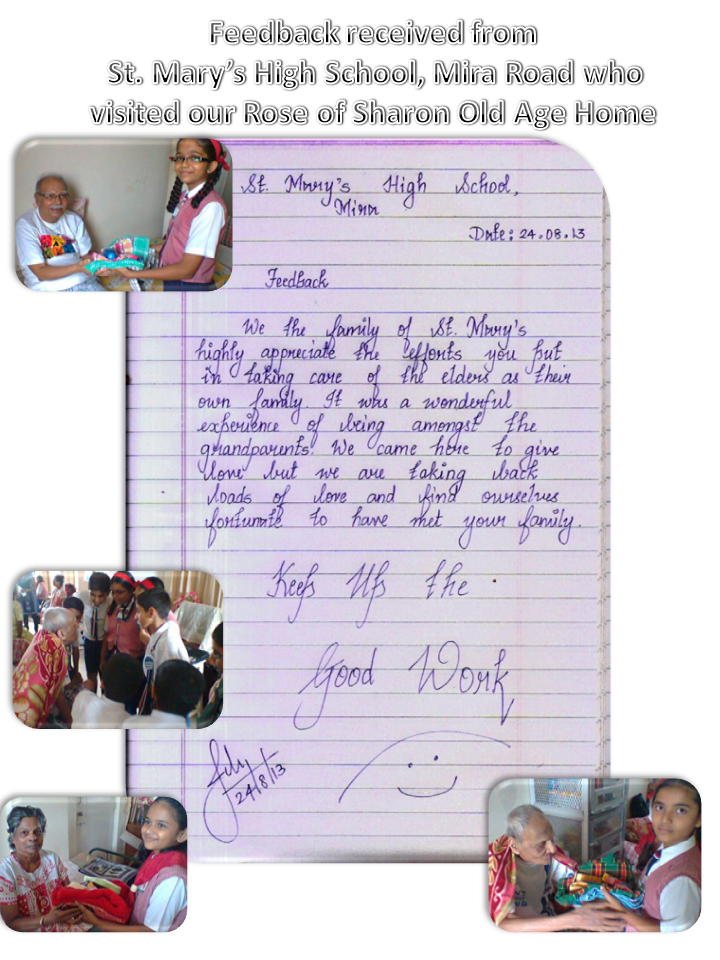 Feedback received from
St. Mary's High School, Mira Road who
visited our Rose of Sharon Old Age Home
St. Mary's High School,
Mira
Date: 24.08.13
Feedback
We the family of St. Mary's
highly appreciate the efforts you put
in taking care of the elders as their
own family. It was a wonderful
experience of being amongst the
grandparents. We came here to give
love but we are taking back
loads of love and find ourselves
fortunate to have met your family.
Keep Up the
Good Work
24/8/13